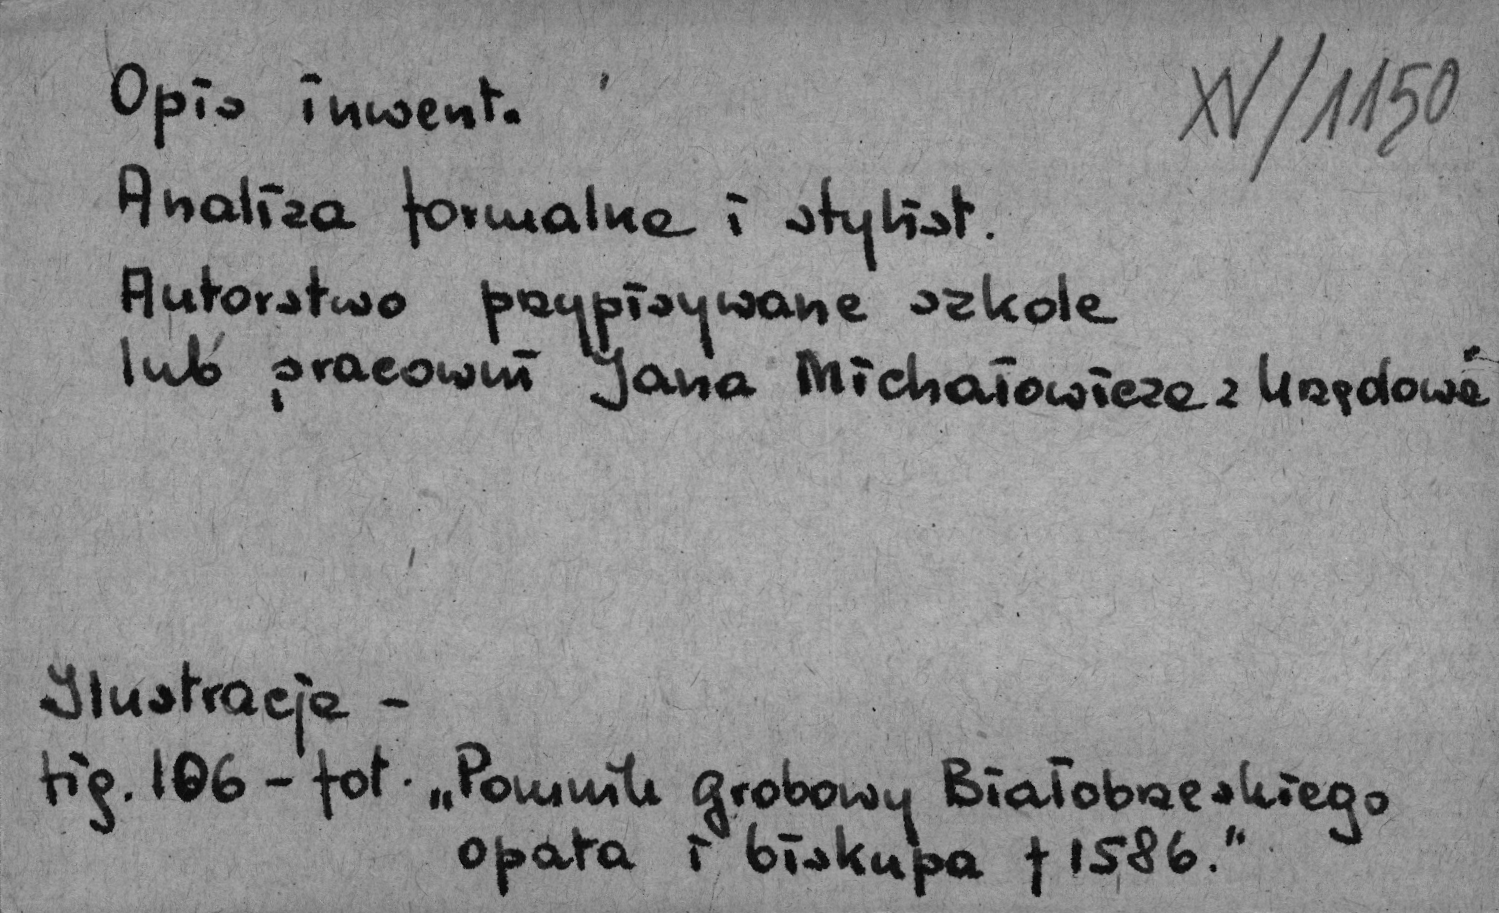 XV/1150
Opis inwent.
Analiza formalna i stylist.
Autorstwo przypisywane szkole
lub pracowni Jana Michałowicza z Urzędowa
Ilustracja -
fig. 106 - fot. „Pomnik grobowy Białobrzeskiego
opata i biskupa † 1586."